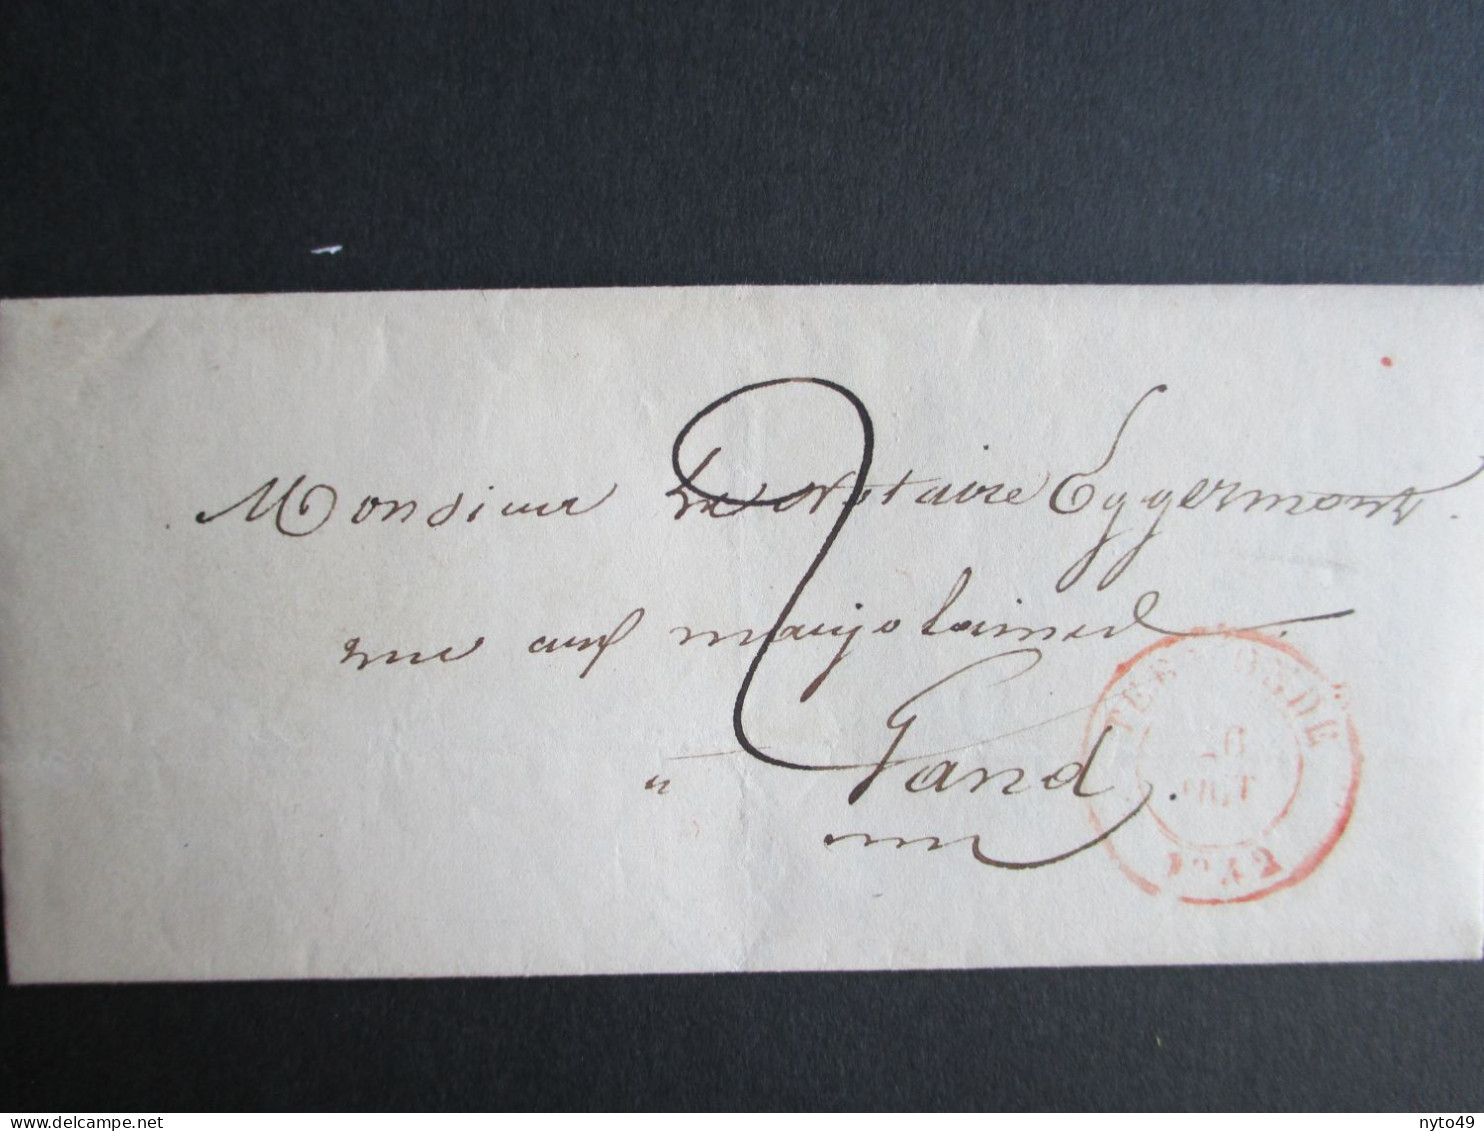 Monsieur le Notaire Eggermont
rue aux marjolaines
" Gand.
2
TERMONDE
1842
delcampe.net
nyto49